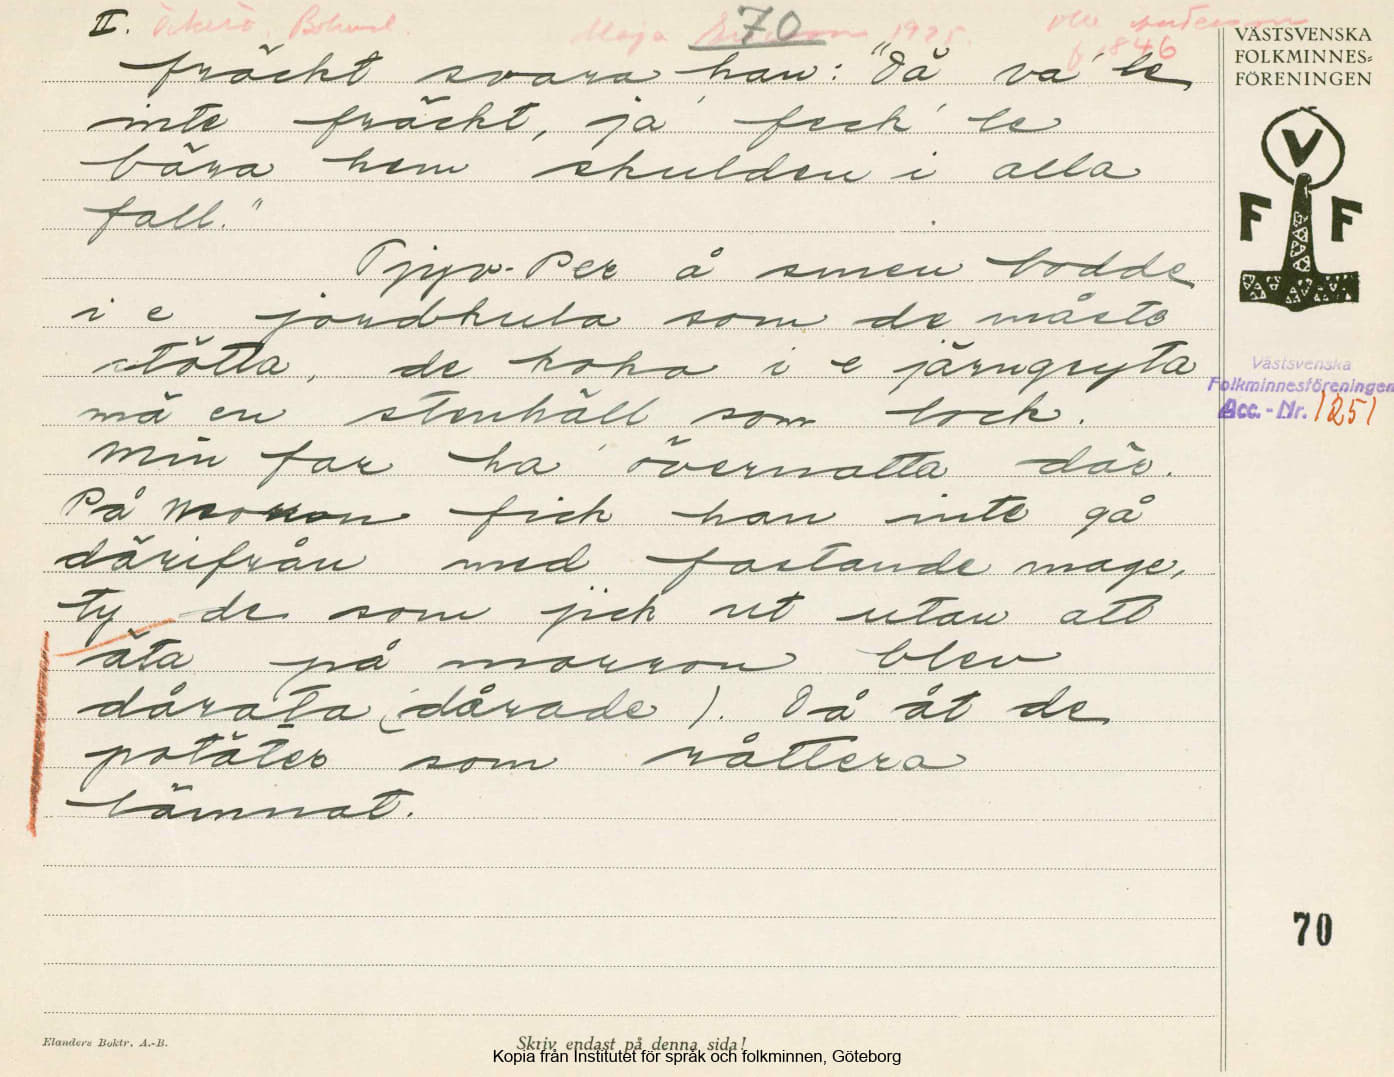 II. Öckerö, Bohusl. Maja Ericson 1925. Olle Andersson
70 f 1846
fräckt svara' han: "Då va' le
inte fräckt, ja' feck' le
bära hem skulden i alla
fall."
Tjyv-Per å smen bodde
i e jordkula som de måste
stötta, de koka i e järngryta
mä en stenhäll som lock.
Min far ha' övernatta där.
På morron fick han inte gå
därifrån med fastande mage,
ty de som jick ut utan att
äta på morron blev
dårata (dårade). Då åt de
potäter som råttera
lämnat.
VÄSTSVENSKA
FOLKMINNES=
FÖRENINGEN
V
F F
Västsvenska
Folkminnesföreningen
Acc.-Nr. 1251
70
Elanders Boktr. A.-B.
Skriv endast på denna sida!
Kopia från Institutet för språk och folkminnen, Göteborg